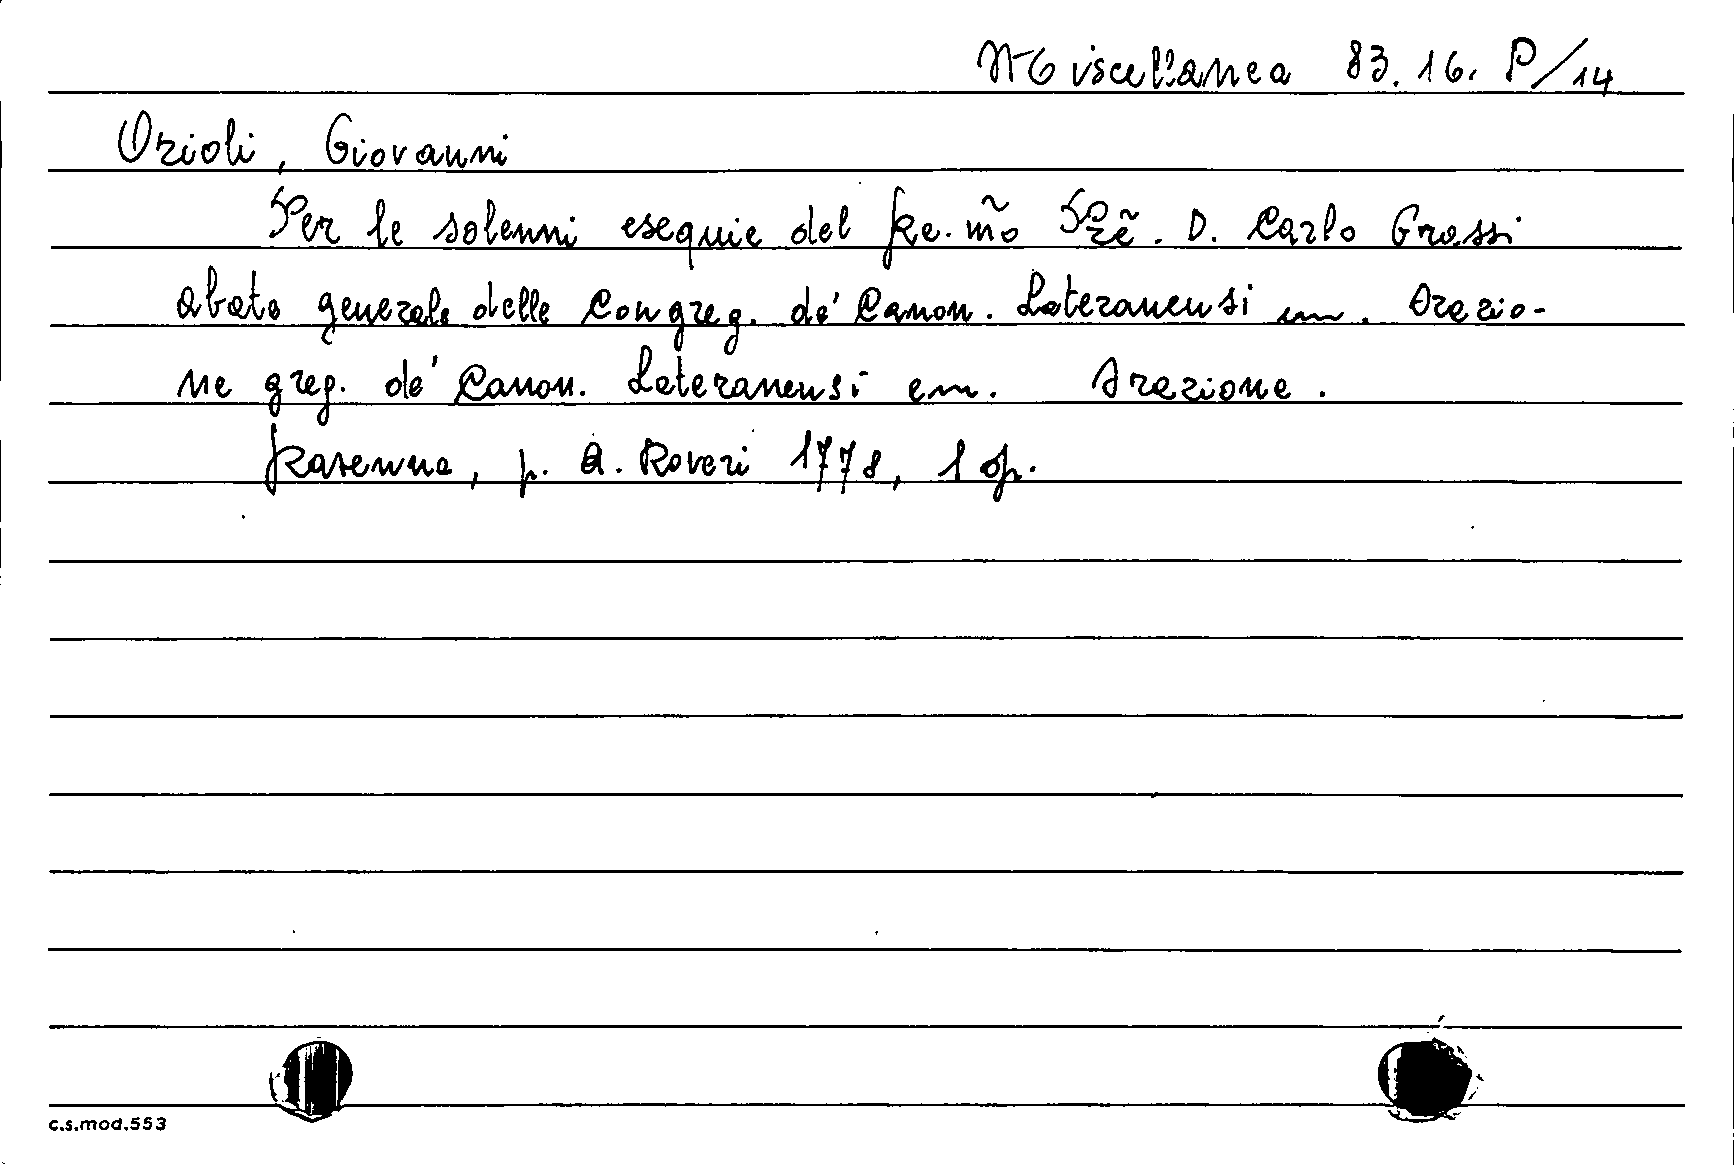 Miscellanea 83.16. P/14
Orioli, Giovanni
Per le solenni esequie del Re.m̃o P.rẽ. D. Carlo Grassi
abate generale della Congreg. de' Canon. Lateranensi em. Orazio-
ne greg. de' Canon. Lateranensi em. Orazione.
Ravenna, p. A. Roveri 1778, 1 op.
c.s.mod.553